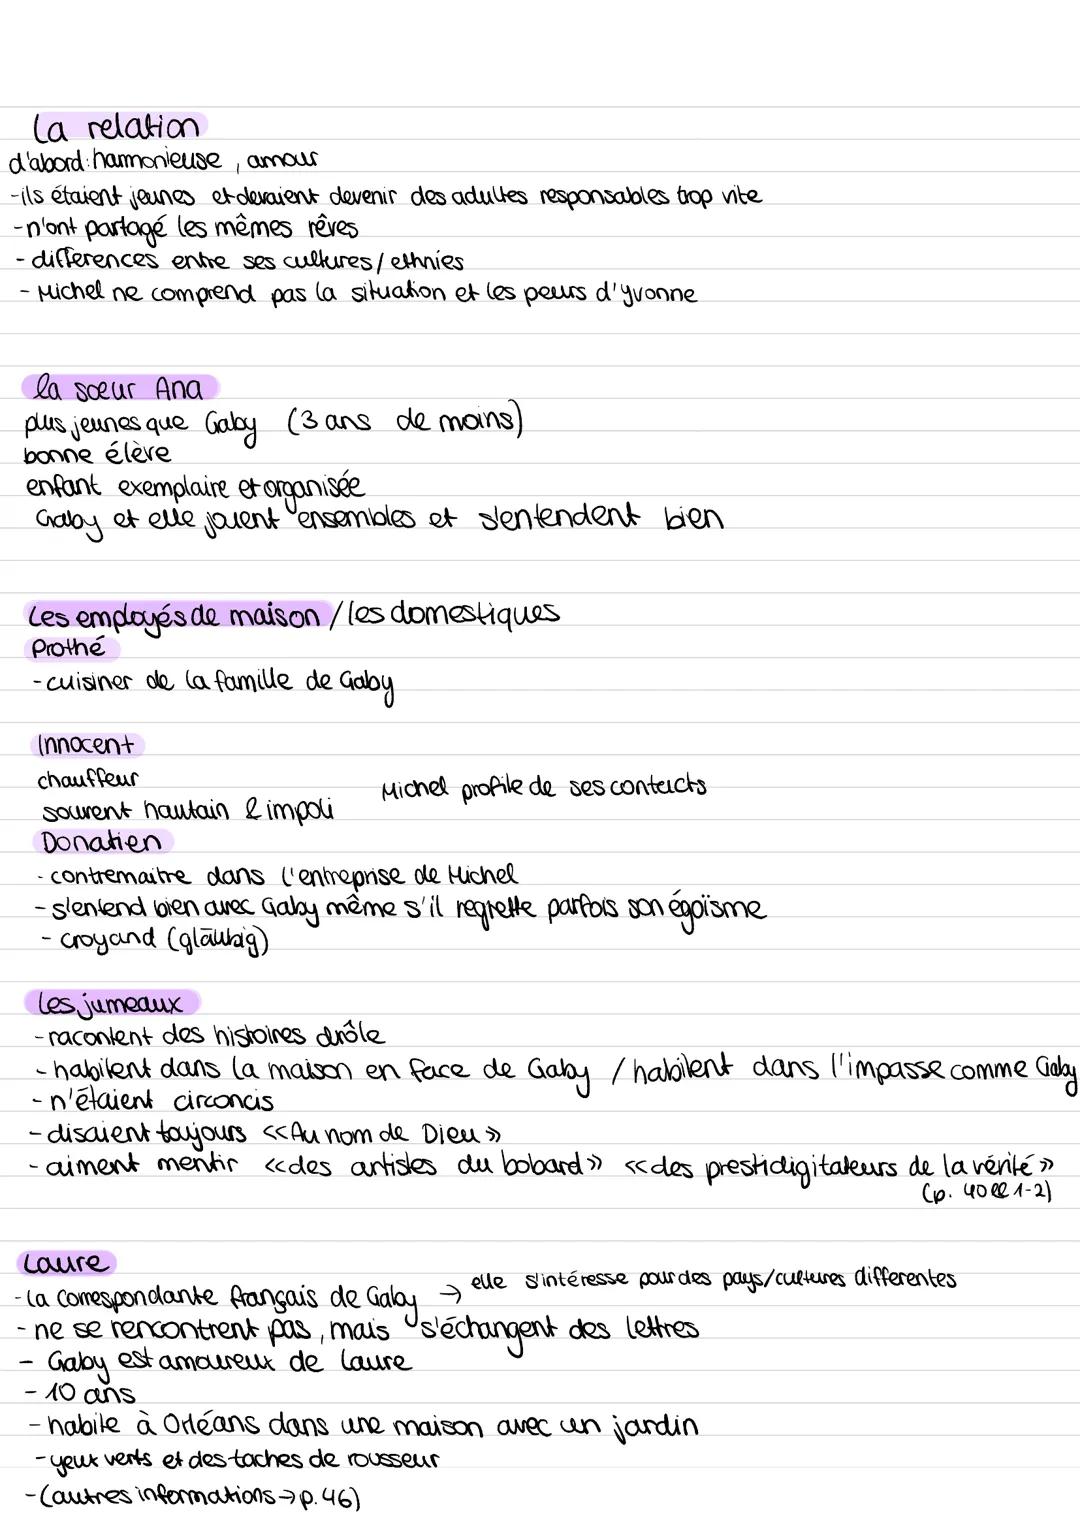 La relation
d'abord: harmonieuse, amour
-ils étaient jeunes et devraient devenir des adultes responsables trop vite
-n'ont partagé les mêmes rêves
- differences entre ses cultures/ethnies
- Michel ne comprend pas la situation et les peurs d'yvonne
la sœur Ana
plus jeunes que Gaby (3 ans de moins)
bonne élève
enfant exemplaire et organisée
Gaby et elle jouent ensembles et s'entendent bien
Les employés de maison /les domestiques
Prothé
-cuisiner de la famille de Gaby
Innocent
chauffeur
souvent hautain & impoli
Michel profile de ses contacts
Donatien
- contremaitre dans l'entreprise de Michel
-s'entend bien avec Gaby même s'il regrette parfois son égoïsme
- croyand (gläubig)
Les jumeaux
-racontent des histoires drôle
-habitent dans la maison en face de Gaby / habitent dans l'impasse comme Gaby
-n'étaient circoncis
-disaient toujours <<Au nom de Dieu>>
-aiment mentir <<des artistes du bobard>> <<des prestidigitateurs de la vérité>>
(p. 40 ll 1-2)
Laure
-la correspondante français de Gaby → elle s'intéresse pour des pays/cultures differentes
-ne se rencontrent pas, mais s'échangent des lettres
- Gaby est amoureux de Laure
- 10 ans
-habite à Orléans dans une maison avec un jardin
-yeux verts et des taches de rousseur
-(autres informations→p.46)